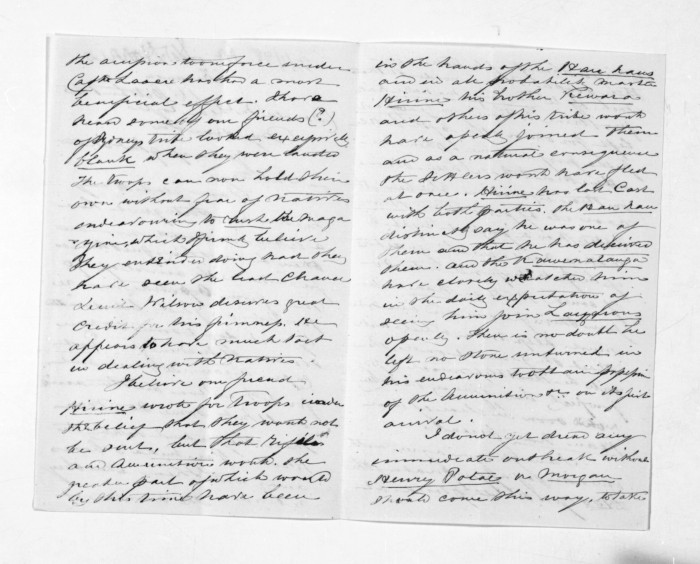 the
Castle a most
beneficial effect. I have
heard some of our friends (?)
of Hineys tribe looked excessively
blank when they were landed
The troops can now hold their
own without fear of Natives
endeavouring to the Maga
zine, which I firmly believe
they doing had they
have seen the least chance
Lieut Wilson deserves great
Credit for his firmness. He
appears to have much tact
in dealing with Natives.
I believe our friend
Hirine wrote for Troops under
the belief that they would not
be sent, but that Rifles
and Ammunition would. the
greater part of which would
by this time have been
in the hands of the Hau haus
and in all probability
Hirine his brother
and others of his tribe would
have openly joined them
and as a natural consequence
the Settlers would have fled
at once. Hirine has lost Cast
with both parties. the Hau hau
distinctly say he was one of
them and that he has deceived
them. and the
have closely watched him
in the daily expectation of
seeing him join
openly. There is no doubt he
left no stone unturned in
his endeavours to obtain possession
of the Ammunition &c on its first
arrival.
I do not yet dread any
immediate outbreak without
Henry Potae or Morgan
should come this way, to take